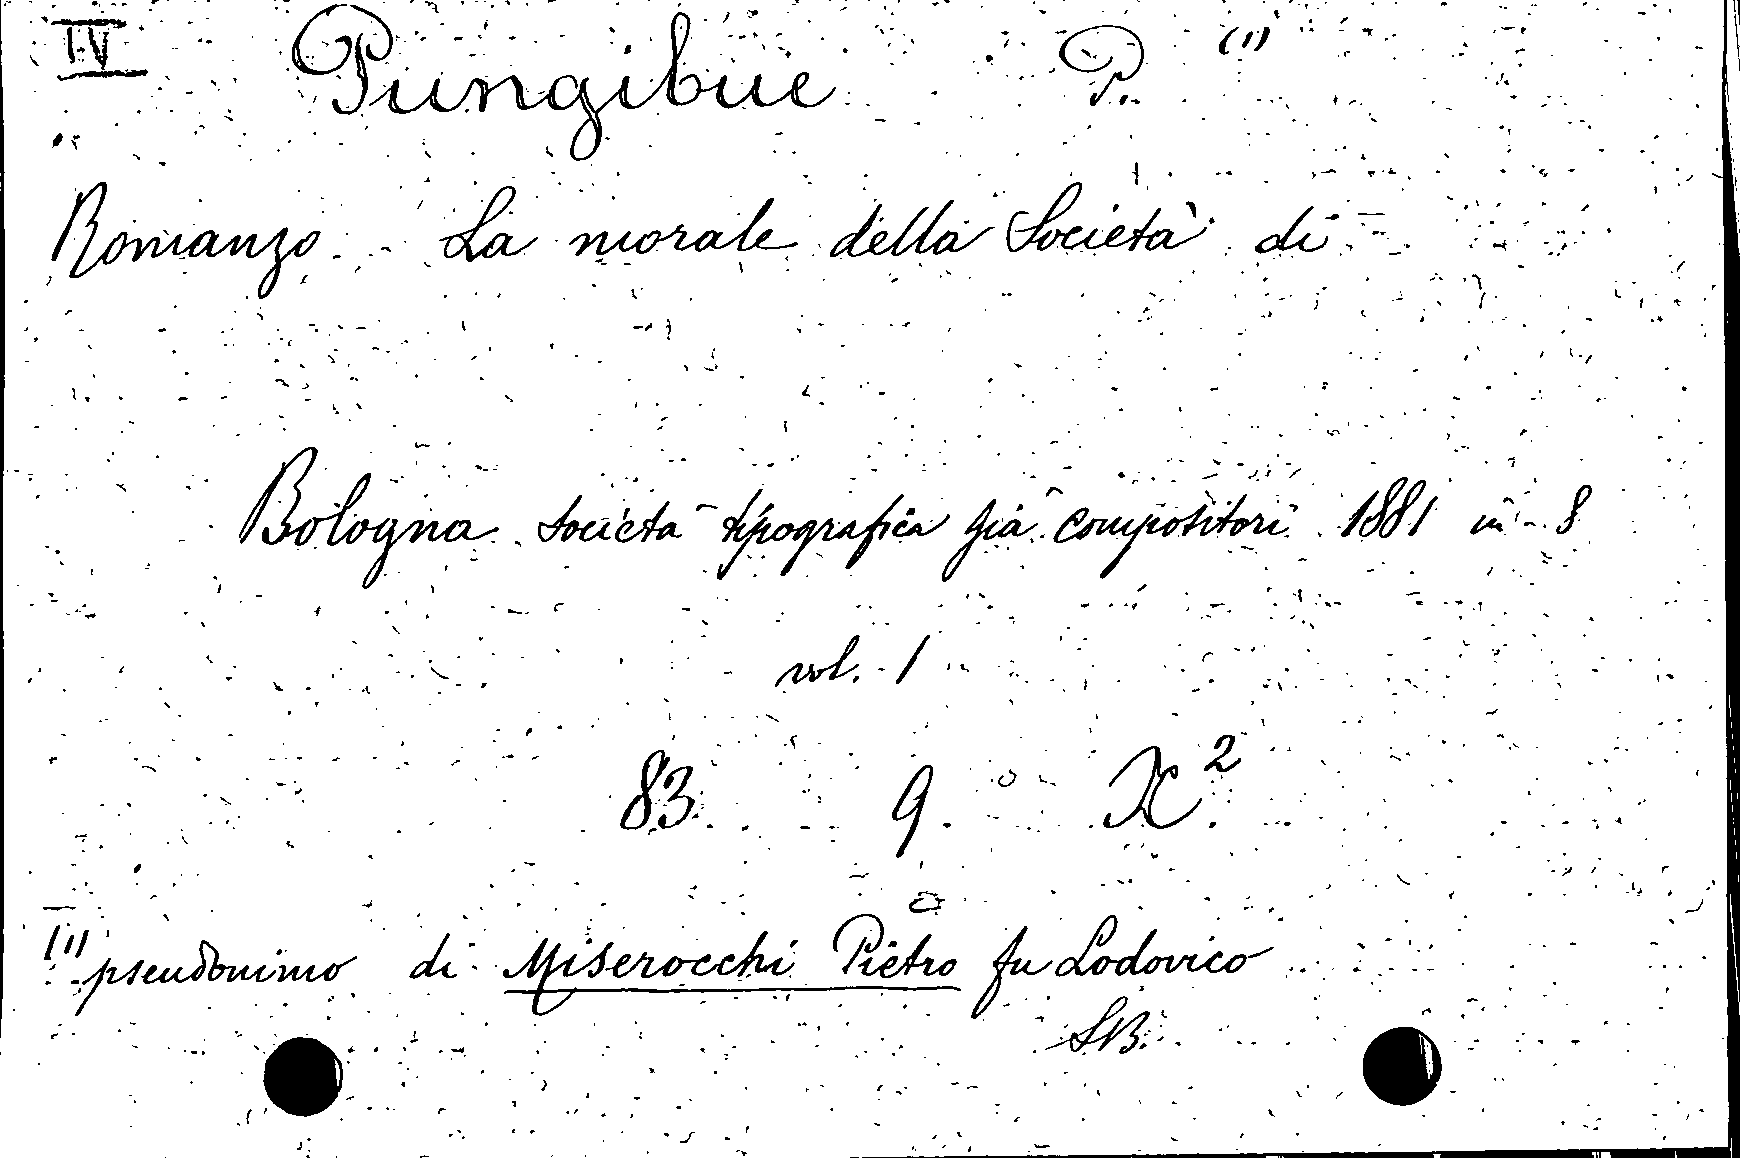 IV Pungibue P. (1)
Romanzo - La morale della Società di
Bologna società tipografica già compositori 1881 in-8
vol. 1
83. 9. X².
(1) pseudonimo di Miserocchi Pietro fu Lodovico